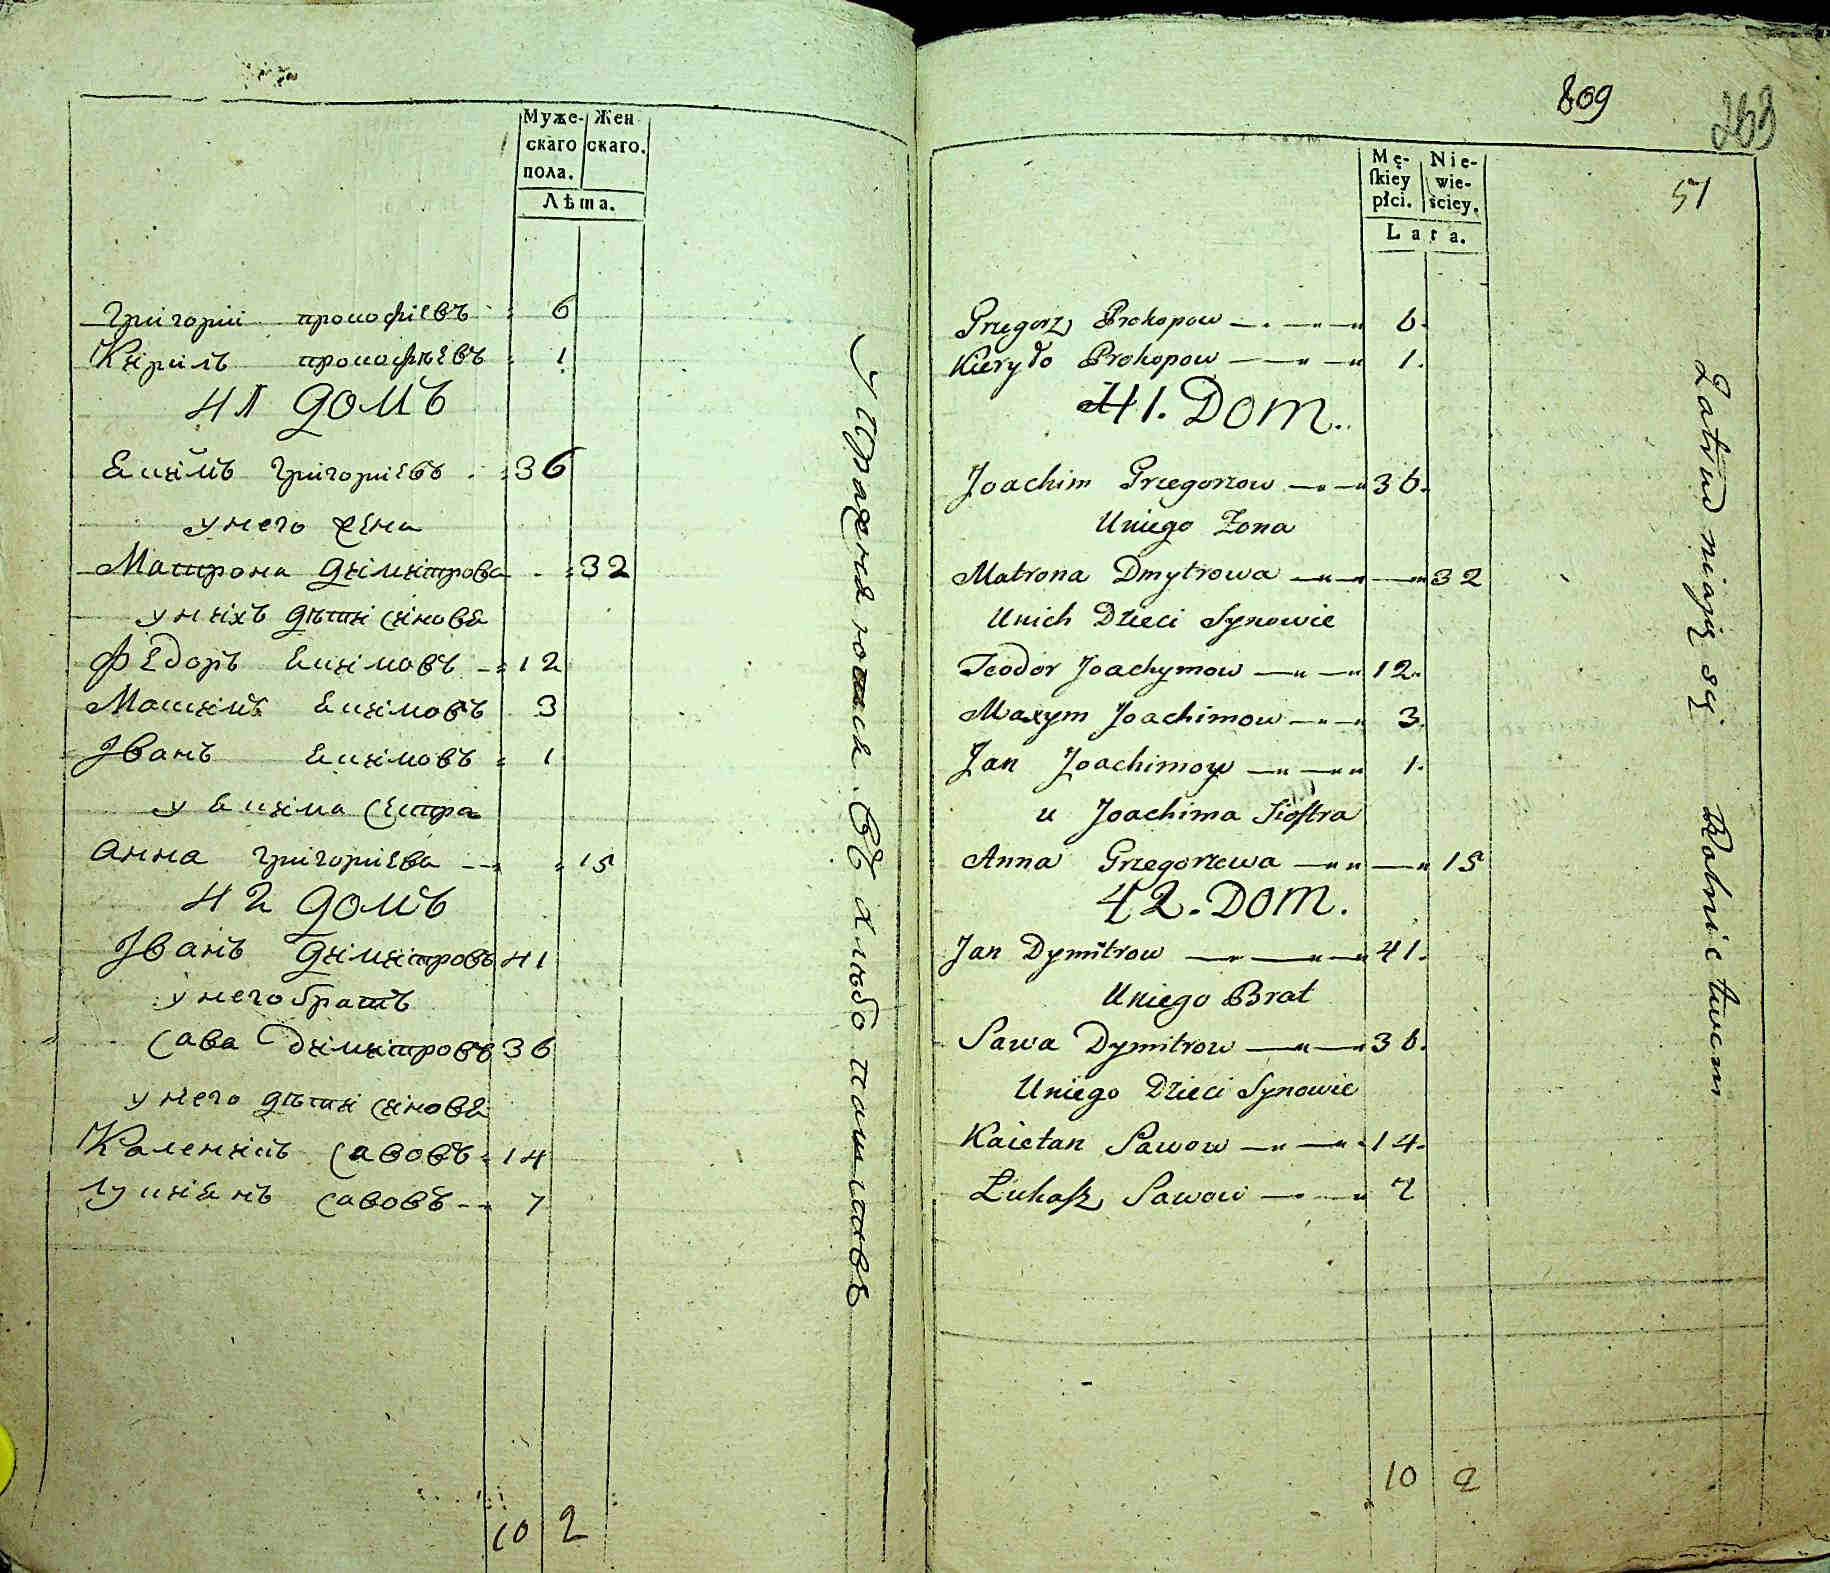 Муже- Жен
скаго скаго.
пола.
Лѣта.
Григорій прокофіевъ 6
Кирилъ прокофіевъ 1
41 домъ
Екимъ григоріевъ 36
у него жена
Матрона димитрова 32
у нихъ дѣти синове
Федоръ Екимовъ 12
Максимъ Екимовъ 3
Іванъ Екимовъ 1
у Екима сестра
Анна григоріева 15
42 домъ
Іванъ димитровъ 41
у него братъ
Сава димитровъ 36
у него дѣти синове
Каленикъ Савовъ 14
Лукіянъ Савовъ 7
10 2
Упражняются въ хлѣбопашствѣ
809
268
51
Mę- Nie-
ſkiey wie-
płci. ściey.
Lata.
Grzegorz Prokopow 6.
Kieryło Prokopow 1.
41. Dom.
Joachim Grzegorzow 36.
Uniego Zona
Matrona Dmytrowa 32
Unich Dzieci Synowie
Teodor Joachymow 12.
Maxym Joachimow 3.
Jan Joachimow 1.
u Joachima Sioſtra
Anna Grzegorzewa 15
42. Dom.
Jan Dymitrow 41.
Uniego Brat
Sawa Dymitrow 36.
Uniego Dzieci Synowie
Kaietan Sawow 14.
Łukaſz Sawow 7
10 2
Zatrudniaią się Rolnictwem